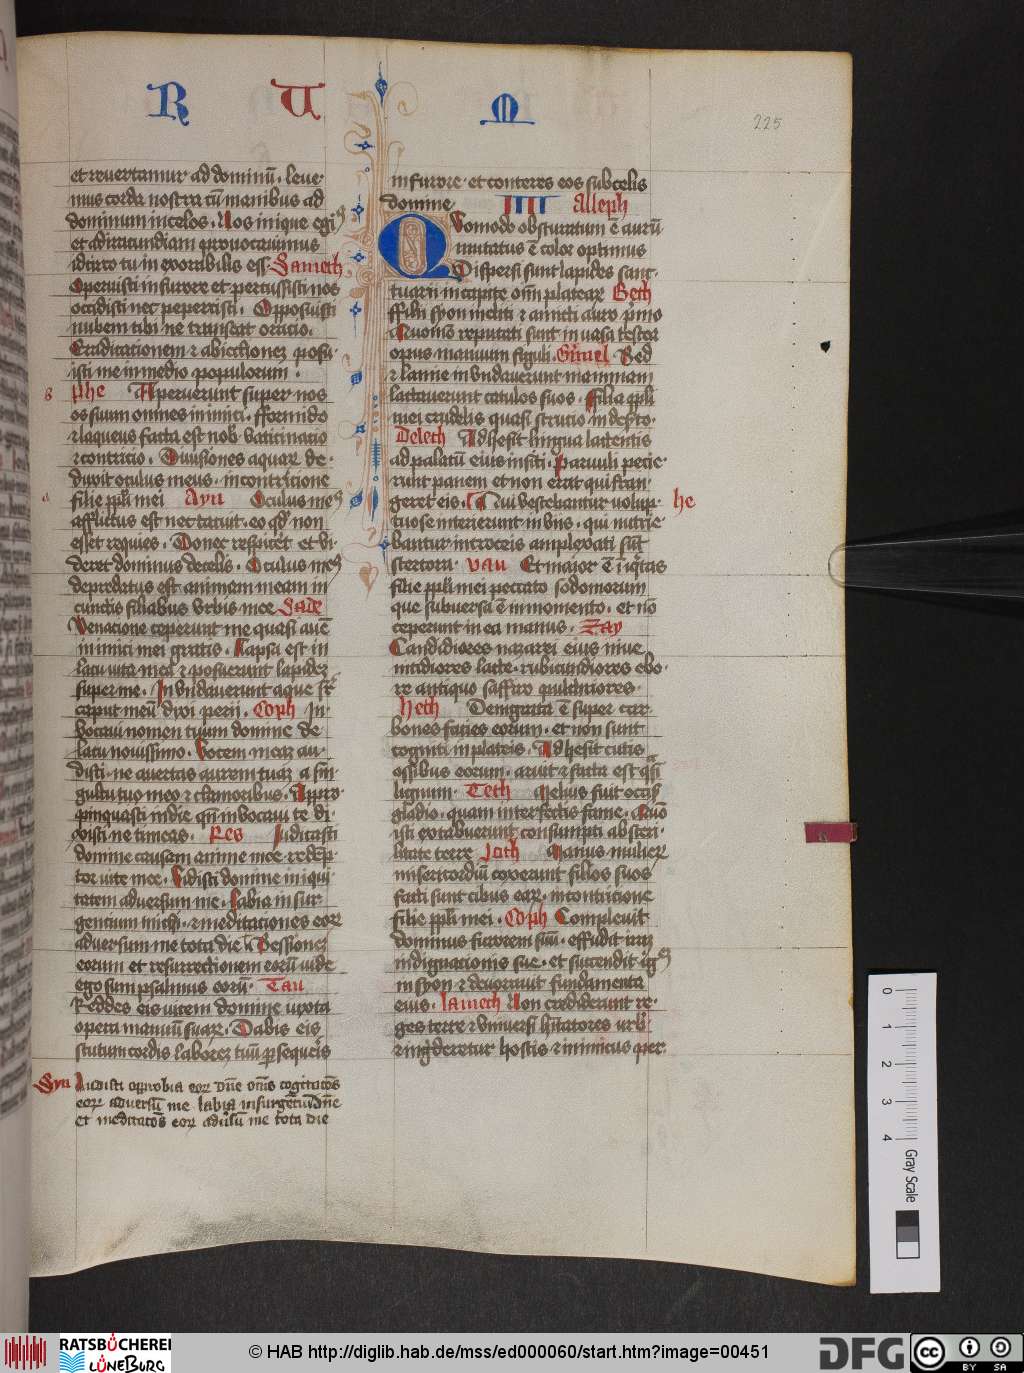 R U M
225
et reuertamur ad dominū. leue-
mus corda nostra cū manibus ad
dominum in celos. Nos inique egi⁹
et ad iracundiam prouocauimus
idcirco tu inexorabilis es. Samech
Operuisti in furore et percussisti nos
occidisti nec pepercisti. Opposuisti
nubem tibi ne transeat oracio.
Eradicationem ⁊ abiectionez posu-
isti me in medio populorum.
B Phe Aperuerunt super nos
os suum omnes inimici. fformido
⁊ laqueus facta est nob. vaticinatio
⁊ contricio. Diuisiones aquaꝝ de-
duxit oculus meus. in contricione
a filie ppli mei Ayn Oculus me⁹
afflictus est nec tacuit. eo qd non
esset requies. Donec respiceret et vi-
deret dominus de celis. Oculus me⁹
depredatus est animam meam in
cunctis filiabus vrbis mee Sade
Venacione ceperunt me quasi auē
inimici mei gratis. Lapsa est in
lacu vita mea ⁊ posuerunt lapidez
super me. Inundauerunt aque sr
caput meū dixi perij. Coph In-
uocaui nomen tuum domine de
lacu nouissimo. Vocem meaz au-
disti. ne auertas aurem tuaz a sin-
gultu tuo meo ⁊ clamoribus. Appro-
pinquasti in die qn inuocaui te di-
xisti ne timeas. Res Iudicasti
domine causam anime mee. redēp-
tor vite mee. Vidisti domine iniqui-
tatem aduersum me. Labia insur-
gencium michi. ⁊ meditationes eoꝝ
aduersum me tota die. Sessionez
eorum et resurrectionem eorū vide
ego sum psalmus eorū. Tau
Reddes eis vicem domine iuxta
opera manuū suaꝝ. Dabis eis
scutum cordis laborez tuū persequeris
Syn Audisti oprobia eoꝝ dn̄e omēs cogitacōēs
eoꝝ aduersū me labia insurgētiū
et meditacōēs eoꝝ adūsū me tota die
in furore. et conteres eos sub celis
domine. IIII Alleph
Quomodo obscuratum ē aurū
mutatus ē color optimus
Dispersi sunt lapides sanc-
tuarij in capite oīm plateaꝝ Beth
ffilij syon incliti ⁊ amicti auro pͥmo
Quomō reputati sunt in vasa testea
opus manuum figuli. Gimel Sed
⁊ lamie inundauerunt mammam
lactauerunt catulos suos. ffilia ppli
mei crudelis quasi strucio in deserto.
Delech Adhesit lingua lactentis
ad palatū eius in siti. Paruuli petie-
runt panem et non erat qui fran-
geret eis. Qui vescebantur volup- he
tuose interierunt in vijs. qui nutrie-
bantur in croceis amplexati sūt
stercora. vau Et maior ē iniqͥtas
filie ppli mei peccato sodomorum
que subuersa ē in momento. et nō
ceperunt in ea manus. Zay
Candidiores nazarei eius niue
nitidiores lacte. rubicundiores ebo-
re antiquo saffiro pulchriores.
Heth Denigrata ē super car-
bones facies eorum. et non sunt
cogniti in plateis. Adhesit cutis
ossibus eorum. aruit ⁊ facta est qͣsi
lignum. Teth Melius fuit occis
gladio. quam interfectis fame. Quō
isti extabuerunt consumpti ab steri-
litate terre Joth Manus mulieꝝ
misericordiū coxerunt filios suos
facti sunt cibus eaꝝ. in contricione
filie ppli mei. Coph Compleuit
dominus furorem suū. effudit iraz
indignacionis sue. et succendit ig⁹
in syon ⁊ deuorauit fundamenta
eius. lamech Non crediderunt re-
ges terre ⁊ vniuersi hitatores vrb
⁊ ingderetur hostis ⁊ inimicus per
0 1 2 3 4
Gray Scale
RATSBÜCHEREI
LÜNEBURG
© HAB http://diglib.hab.de/mss/ed000060/start.htm?image=00451
DFG
cc BY SA